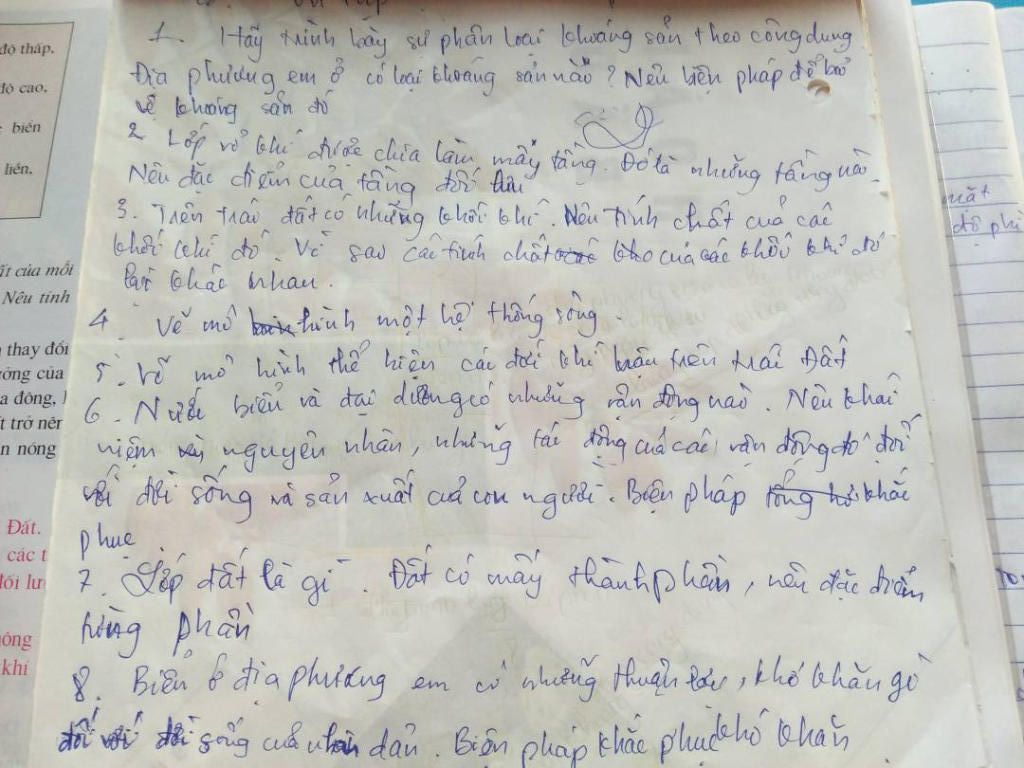 độ thấp.
độ cao.
biển
liền.
ất của mỗi
Nêu tính
thay đổi
ởng của
a đông,
t trở nên
n nóng
Đất.
các t
đối lưu
khí
1. Hãy trình bày sự phân loại khoáng sản theo công dụng
Địa phương em ở có loại khoáng sản nào? Nêu biện pháp để bảo
vệ khoáng sản đó
2 Lớp vỏ khí được chia làm mấy tầng. Đó là những tầng nào.
Nêu đặc điểm của tầng đối lưu
3. Trên trái đất có những khối khí. Nêu tính chất của các
khối khí đó. Vì sao các tính chất của các khối khí đó
lại khác nhau.
4 Vẽ mô hình một hệ thống sông.
5. Vẽ mô hình thể hiện các đới khí hậu trên trái Đất
6. Nước biển và đại dương có những vận động nào. Nêu khái
niệm nguyên nhân, những tác động của các vận động đó đối
với đời sống và sản xuất của con người. Biện pháp khắc
phục
7. Lớp đất là gì. Đất có mấy thành phần, nêu đặc điểm
từng phần
8. Biển ở địa phương em có những thuận lợi, khó khăn gì
đối với đời sống của nhân dân. Biện pháp khắc phục khó khăn
mặt
độ phì